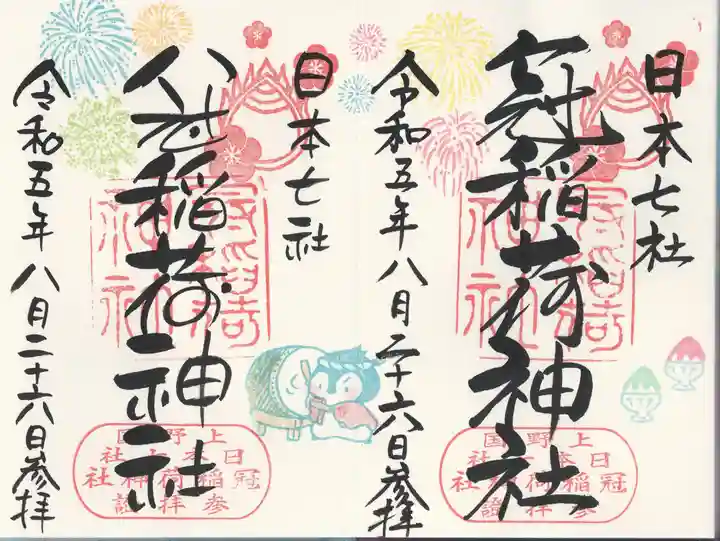 日本七社
冠稲荷神社
令和五年八月二十六日参拝
上野国
日本七社
冠稲荷神社
參拝證
日本七社
冠稲荷神社
令和五年八月二十六日参拝
上野国
日本七社
冠稲荷神社
參拝證